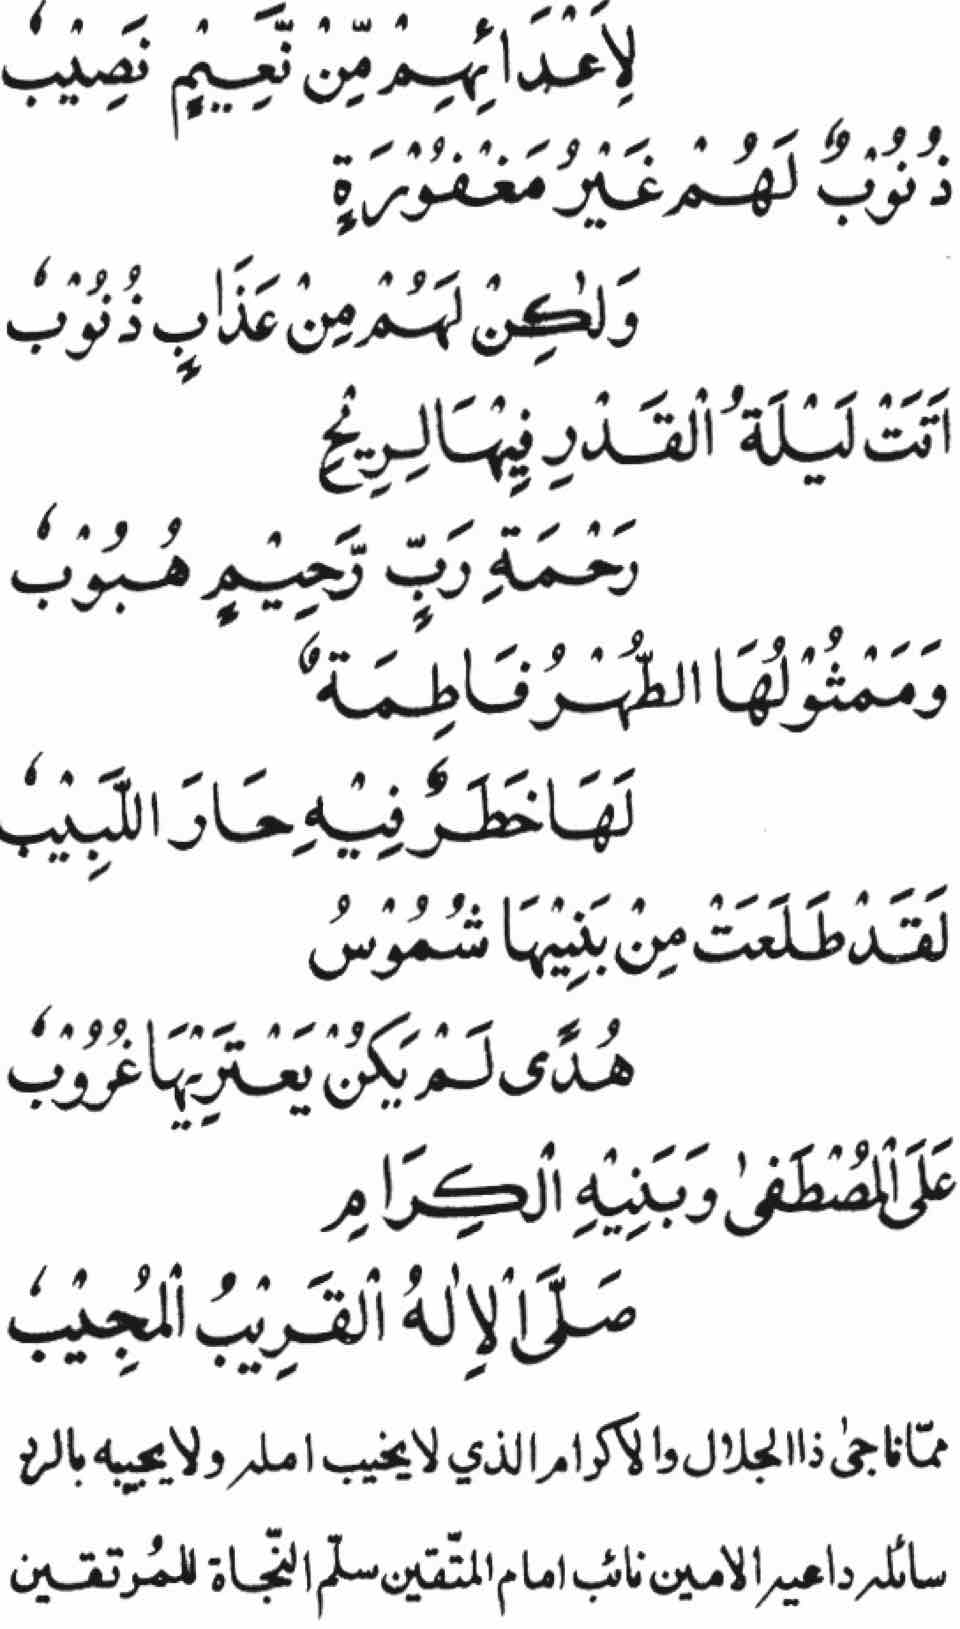 لِاَعْدَائِهِمْ مِّنْ نَّعِيْمٍ نَصِيْبٗ
ذُنُوْبٌ لَهُمْ غَيْرُ مَغْفُوْرَةٍ
وَلٰكِنْ لَهُمْ مِنْ عَذَابٍ ذُنُوْبٗ
اَتَتْ لَيْلَةُ الْقَدْرِ فِيْهَا لِرِيْحِ
رَحْمَةِ رَبٍّ رَّحِيْمٍ هُبُوْبٗ
وَمَمْثُوْلُهَا الطُّهْرُ فَاطِمَةٌ
لَهَا خَطَرٌ فِيْهِ حَارَ اللَّبِيْبٗ
لَقَدْ طَلَعَتْ مِنْ بَنِيْهَا شُمُوْسُ
هُدًى لَمْ يَكُنْ يَعْتَرِيْهَا غُرُوْبٗ
عَلَى الْمُصْطَفىٰ وَبَنِيْهِ الْكِرَامِ
صَلَّى الْاِلٰهُ الْقَرِيْبُ الْمُجِيْبٗ
ممّا ناجىٰ ذا الجلال والاكرام الذي لا يخيب امله ولا يجيبه بالرد
سائله داعيه الامين نائب امام المتّقين سلّم النّجاة للمُرتقين